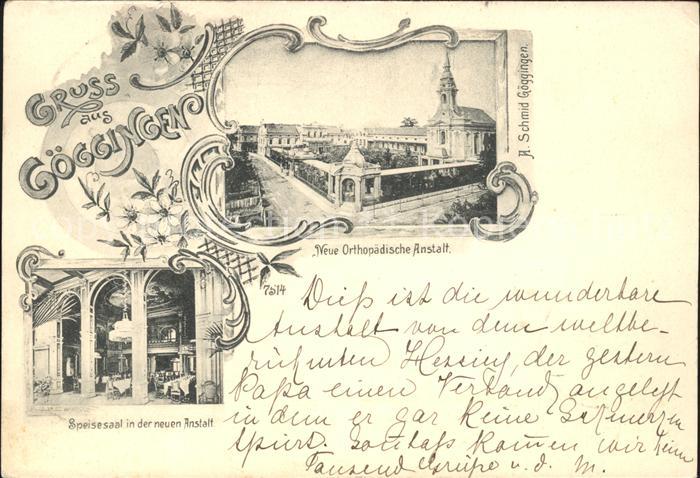 GRUSS
aus
GÖGGINGEN
A. Schmid Göggingen.
Neue Orthopädische Anstalt.
7514
Speisesaal in der neuen Anstalt
Dieß ist die wunderbare
Anstalt von dem weltbe-
rühmten Hessing, der gestern
Papa einen Verband angelegt
in dem er gar keine Schmerzen
spürt. Sonntags kommen wir heim
Tausend Grüße u. d. M.